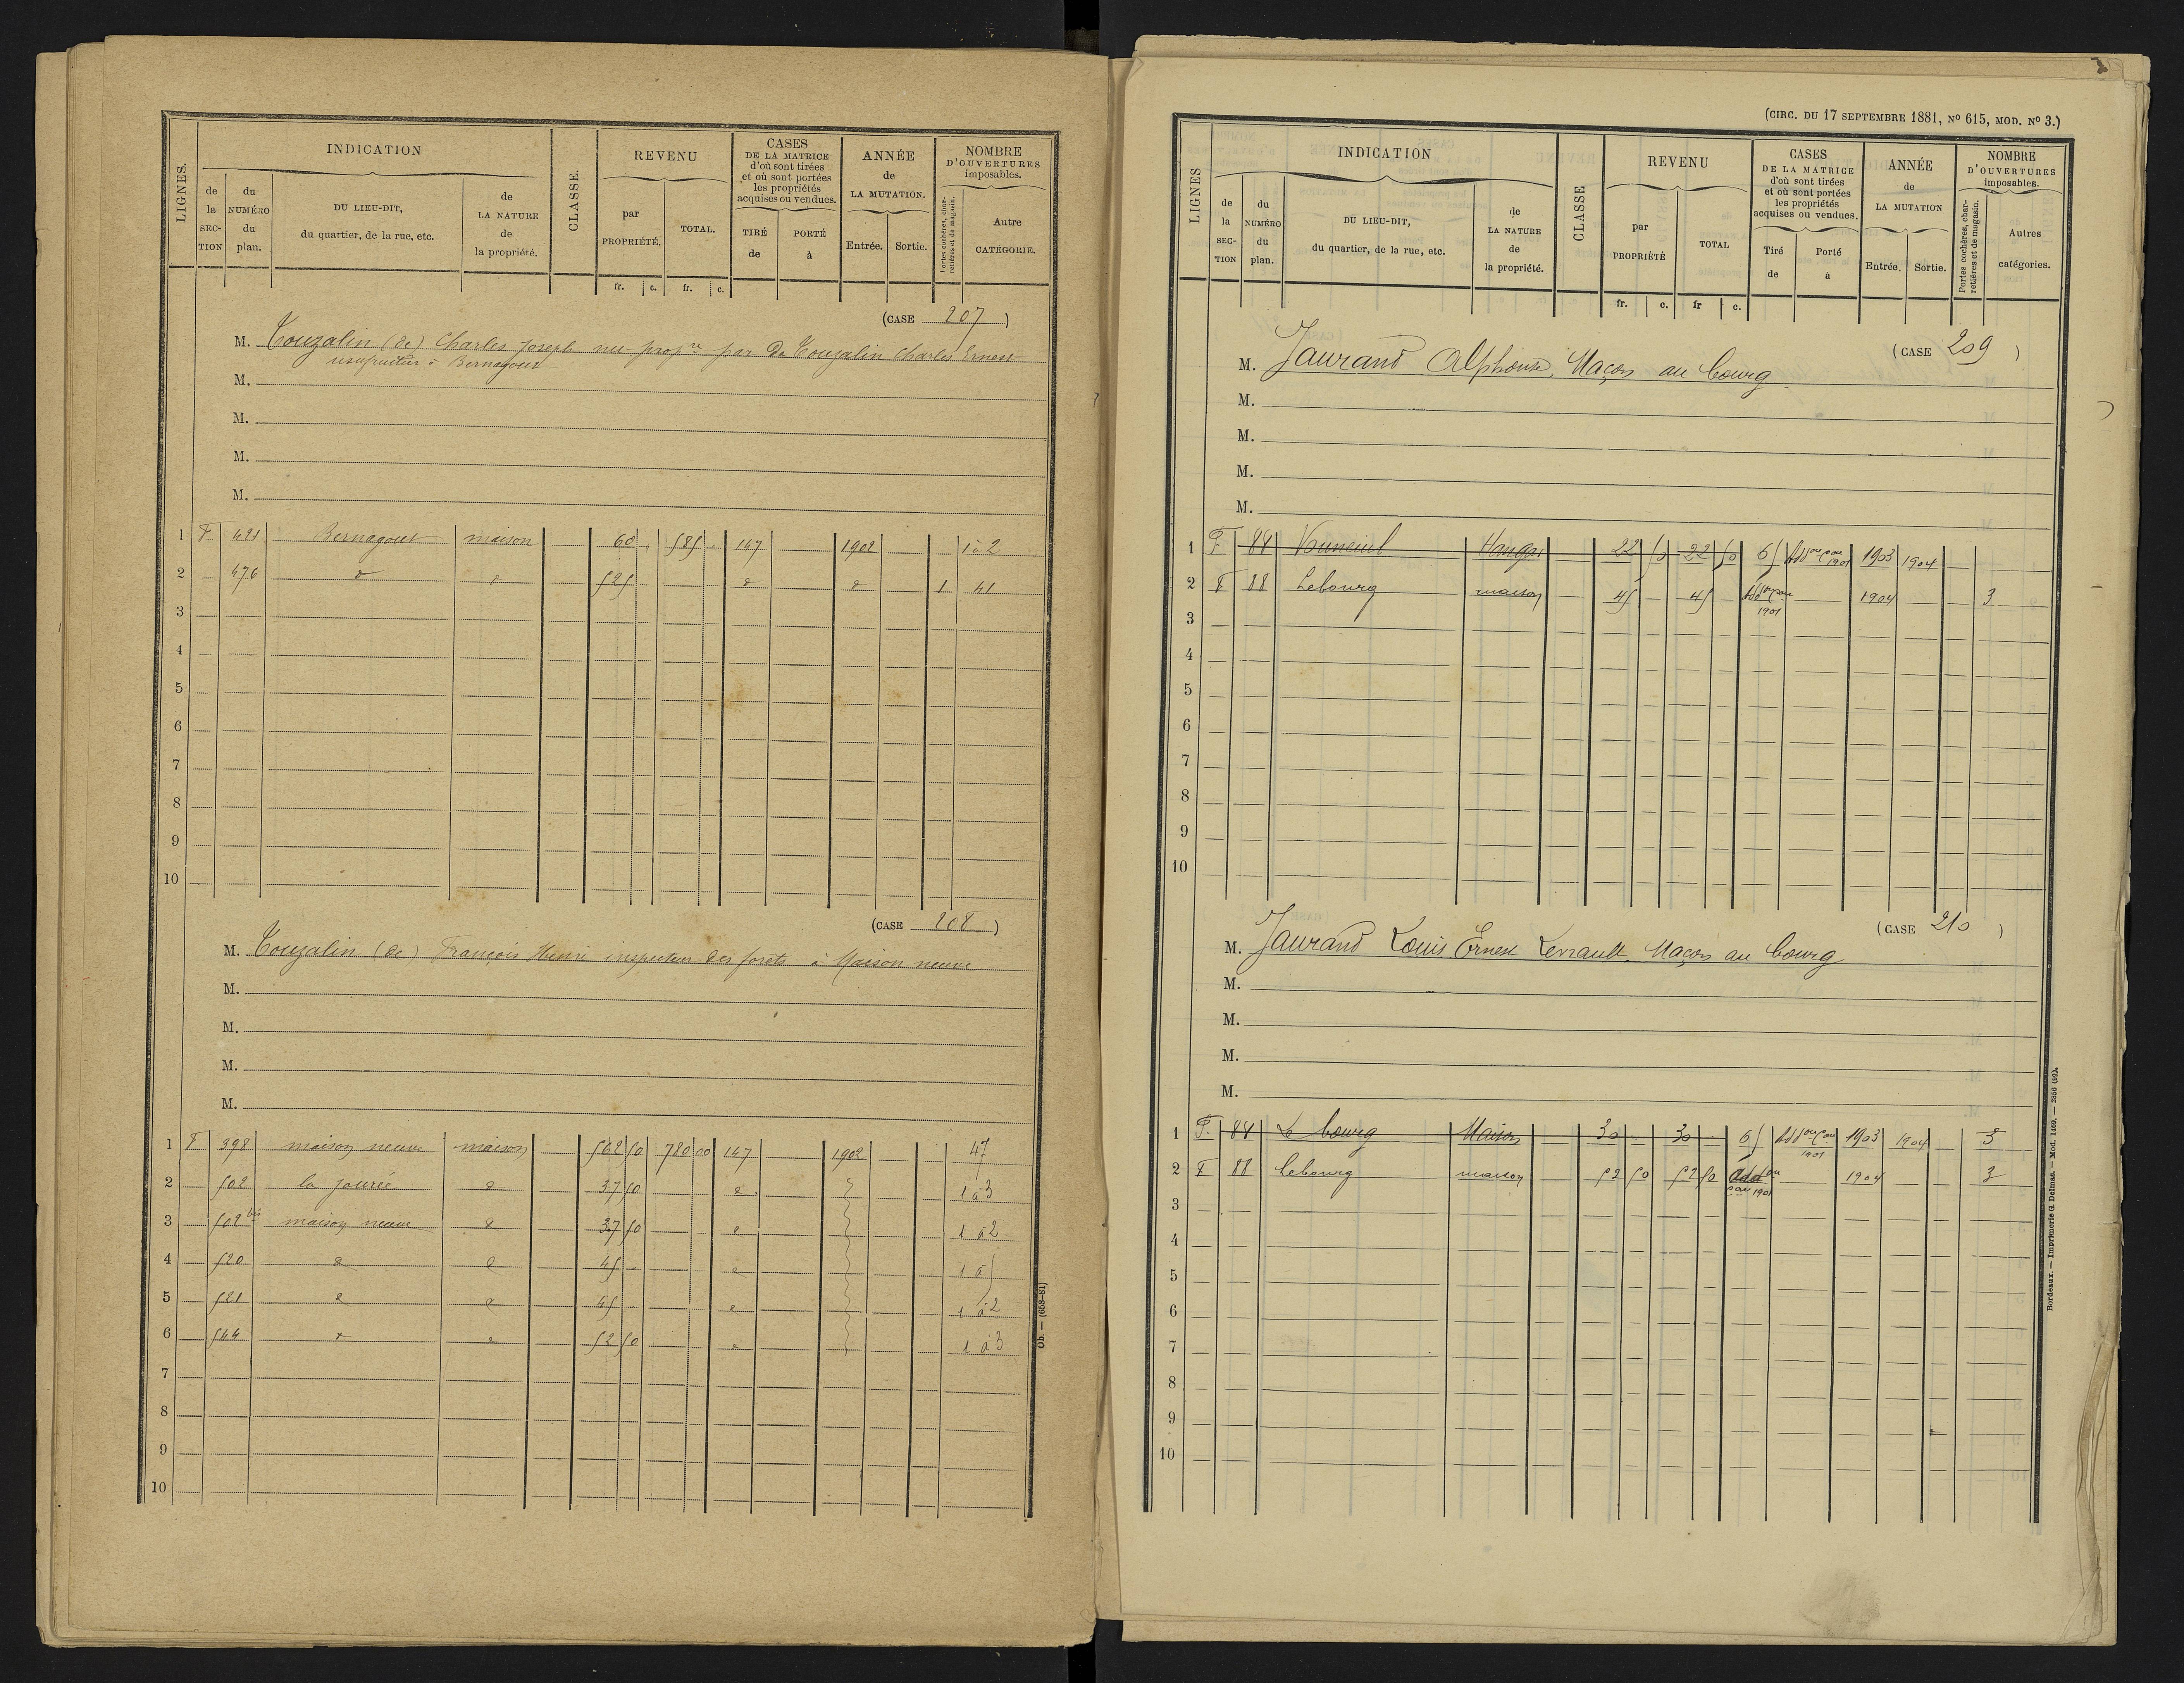 LIGNES.
INDICATION
de la SECTION
du NUMÉRO du plan.
DU LIEU-DIT, du quartier, de la rue, etc.
de LA NATURE de la propriété.
CLASSE.
REVENU
par PROPRIÉTÉ.
TOTAL.
fr. c. fr. c.
CASES DE LA MATRICE d'où sont tirées et où sont portées les propriétés acquises ou vendues.
TIRÉ de
PORTÉ à
ANNÉE de LA MUTATION.
Entrée. Sortie.
NOMBRE D'OUVERTURES imposables.
Portes cochères, charretières et de magasin.
Autre CATÉGORIE.
(CASE 207)
M. Touzalin (de) Charles Joseph nu-propre par De Touzalin Charles Ernest
usufruitier à Bernagout
M.
M.
M.
M.
1 F 421 Bernagout maison 60 585 147 1902 1 à 2
2 476 d d 525 d d 1 41
3
4
5
6
7
8
9
10
(CASE 208)
M. Touzalin (de) François Henri inspecteur des forêts à Maison neuve
M.
M.
M.
M.
1 F 398 maison neuve maison 562 50 780 00 147 1902 47
2 502 la jourie d 37 50 d 1 à 3
3 502 bis maison neuve d 37 50 d 1 à 2
4 520 d d 45 d 1 à 5
5 521 d d 45 d 1 à 2
6 544 d d 52 50 d 1 à 3
7
8
9
10
Ob. — (653-81)
(CIRC. DU 17 SEPTEMBRE 1881, No 615, MOD. No 3.)
LIGNES
INDICATION
de la SECTION
du NUMÉRO du plan.
DU LIEU-DIT, du quartier, de la rue, etc.
de LA NATURE de la propriété.
CLASSE
REVENU
par PROPRIÉTÉ
TOTAL
fr. c. fr c.
CASES DE LA MATRICE d'où sont tirées et où sont portées les propriétés acquises ou vendues.
Tiré de
Porté à
ANNÉE de LA MUTATION
Entrée. Sortie.
NOMBRE D'OUVERTURES imposables.
Portes cochères, charretières et de magasin.
Autres catégories.
(CASE 209)
M. Jaurand Alphonse, Maçon au bourg
M.
M.
M.
M.
1 F 84 Vouneuil Hangar 22 50 22 50 65 1901 1903 1904
2 F 88 Lebourg maison 45 45 1901 1904 3
3
4
5
6
7
8
9
10
(CASE 210)
M. Jaurand Louis Ernest Levrault, Maçon au bourg
M.
M.
M.
M.
1 F 84 Le bourg Maison 30 30 65 1901 1903 1904 3
2 F 88 Lebourg maison 52 50 52 50 1901 1904 3
3
4
5
6
7
8
9
10
Bordeaux. — Imprimerie G. Delmas. — Mod. 1469. — 2856 (99).